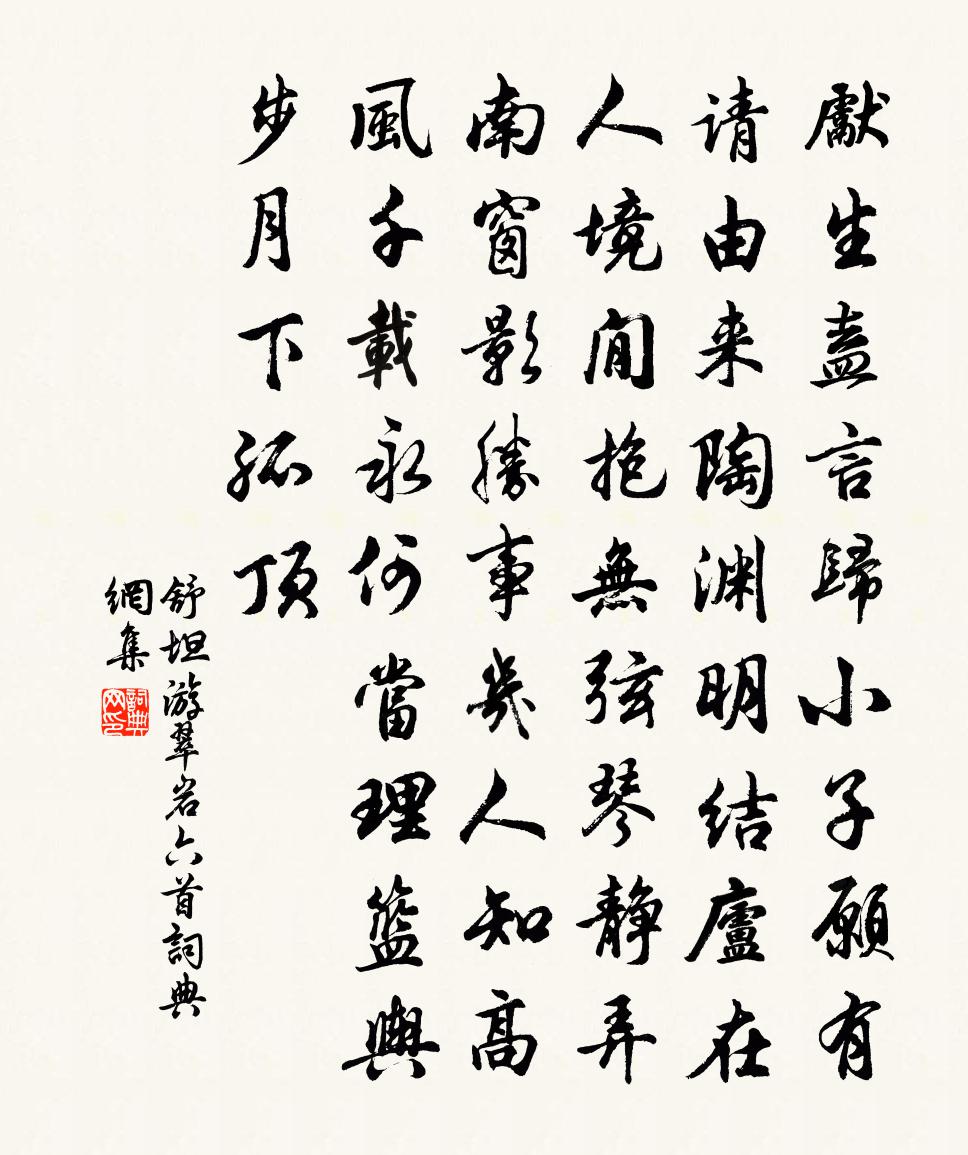 獻生盍言歸小子願有
请由来陶渊明结廬在
人境間抱無弦琴静弄
南窗影勝事幾人知高
風千載永何當理籃輿
步月下孤顶
舒坦游翠岩六首詞典
網集
詞典